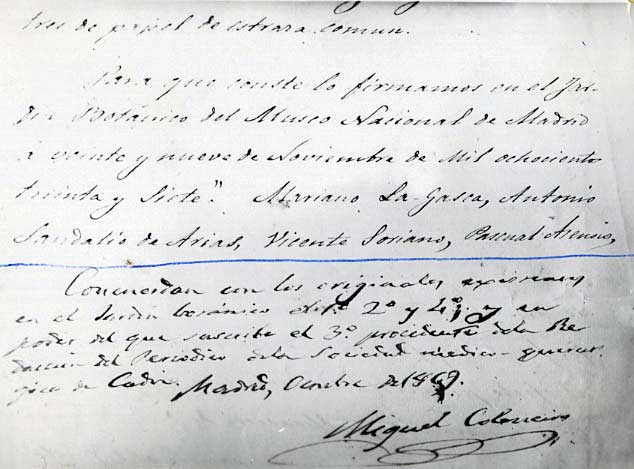 tres de papel de estraza comun.
Para que conste lo firmamos en el Jar-
din Botánico del Museo Nacional de Madrid
à veinte y nueve de Noviembre de Mil ochocientos
treinta y Siete". Mariano La-Gasca, Antonio
Sandalio de Arias, Vicente Soriano, Pascual Asensio,
Concuerdan con los originales
en el Jardin botánico 2º y 4º y en
poder del que suscribe el 3º procidente de la Re-
daccion del Periodico de la Sociedad medico-quirur-
gica de Cadiz. Madrid, Octubre de 1869.
Miguel Colmeiro